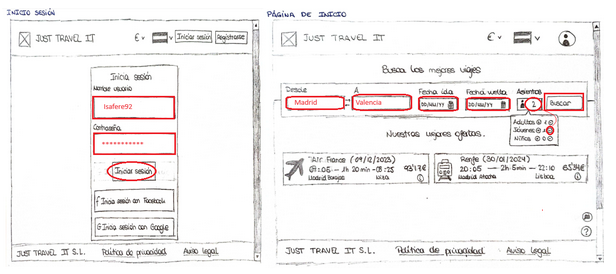 INICIO SESIÓN
JUST TRAVEL IT € Iniciar sesión Registrarse
Inicia sesión
Nombre usuario
Isafere92
Contraseña
***********
Iniciar sesión
f Inicia sesión con Facebook
G Inicia sesión con Google
JUST TRAVEL IT S.L. Política de privacidad Aviso legal
PÁGINA DE INICIO
JUST TRAVEL IT €
Busca los mejores viajes
Desde A Fecha ida Fecha vuelta Asientos
Madrid Valencia DD/MM/YY DD/MM/YY 1 Buscar
Adultos
Jóvenes
Niños
Nuestras mejores ofertas.
Air France (09/12/2023)
1h 20 min
Madrid
Renfe (30/01/2024)
20:05 — 2h 5min — 22:10
Madrid Atocha Lisboa
JUST TRAVEL IT S.L. Política de privacidad Aviso legal